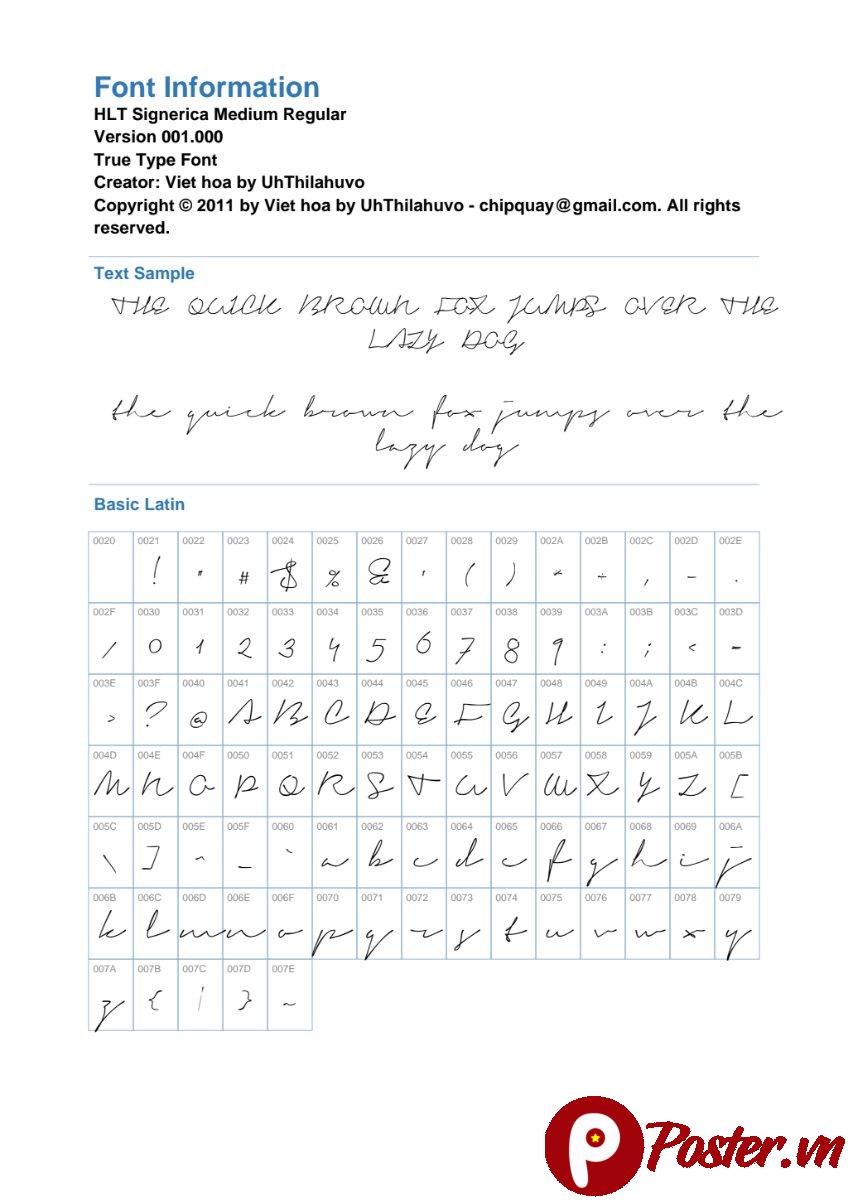 Font Information
HLT Signerica Medium Regular
Version 001.000
True Type Font
Creator: Viet hoa by UhThilahuvo
Copyright © 2011 by Viet hoa by UhThilahuvo - chipquay@gmail.com. All rights
reserved.
Text Sample
THE QUICK BROWN FOX JUMPS OVER THE
LAZY DOG
the quick brown fox jumps over the
lazy dog
Basic Latin
0020 0021 0022 0023 0024 0025 0026 0027 0028 0029 002A 002B 002C 002D 002E
! " # $ % & ' ( ) * + , - .
002F 0030 0031 0032 0033 0034 0035 0036 0037 0038 0039 003A 003B 003C 003D
/ 0 1 2 3 4 5 6 7 8 9 : ; < =
003E 003F 0040 0041 0042 0043 0044 0045 0046 0047 0048 0049 004A 004B 004C
> ? @ A B C D E F G H I J K L
004D 004E 004F 0050 0051 0052 0053 0054 0055 0056 0057 0058 0059 005A 005B
M N O P Q R S T U V W X Y Z [
005C 005D 005E 005F 0060 0061 0062 0063 0064 0065 0066 0067 0068 0069 006A
\ ] ^ _ ` a b c d e f g h i j
006B 006C 006D 006E 006F 0070 0071 0072 0073 0074 0075 0076 0077 0078 0079
k l m n o p q r s t u v w x y
007A 007B 007C 007D 007E
z { | } ~
Poster.vn